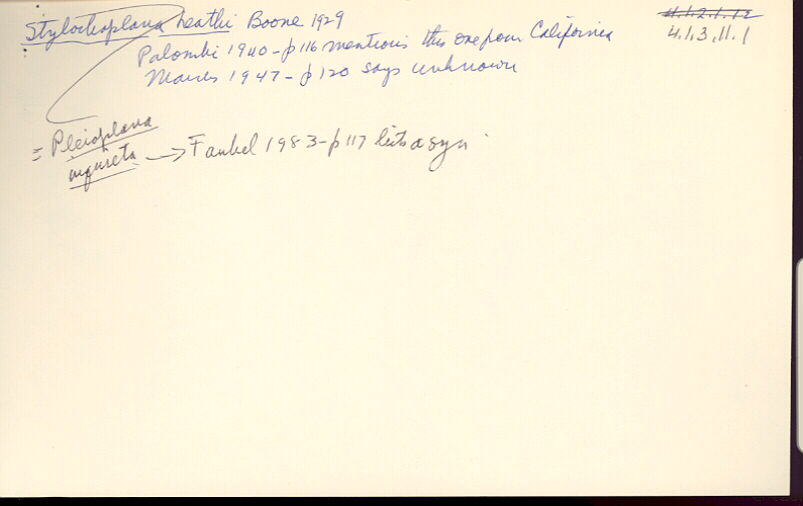 Stylochoplana heathi Boone 1929
4.1.2.1.12
4.1.3.11.1
Palombi 1940 - p 116 mentions this one from California
Marcus 1947 - p 120 says unknown
= Pleioplana
inquieta → Faubel 1983 - p 117 lists a syn.